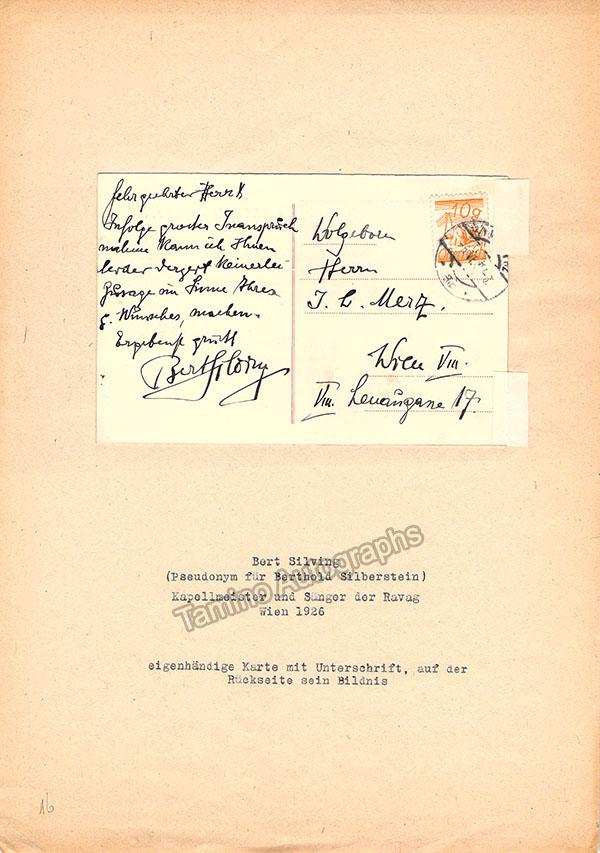 Sehr geehrter Herr!
Infolge grosser Inanspruch
nahme kann ich Ihnen
leider derzeit keinerlei
Zusage im Sinne Ihres
g. Wunsches, machen.
Ergebenst grüsst
Bert Silving
10g
Wolgeborn
Herrn
J. L. Merz.
Wien VIII.
VIII. Lenaugasse 17.
Bert Silving
(Pseudonym für Berthold Silberstein)
Kapellmeister und Sänger der Ravag
Wien 1926
Tamino Autographs
eigenhändige Karte mit Unterschrift, auf der
Rückseite sein Bildnis
16